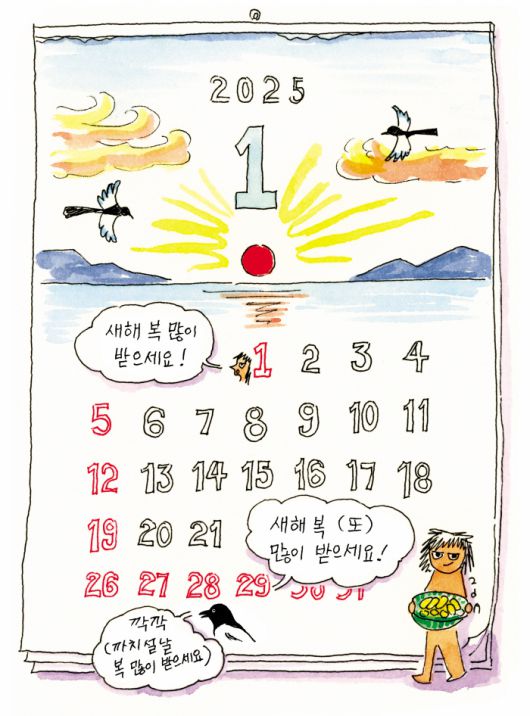 2025
1
새해 복 많이
받으세요!
1 2 3 4
5 6 7 8 9 10 11
12 13 14 15 16 17 18
19 20 21
새해 복 (또)
많이 받으세요!
26 27 28 29 30 31
깍깍
(까치설날
복 많이 받으세요)